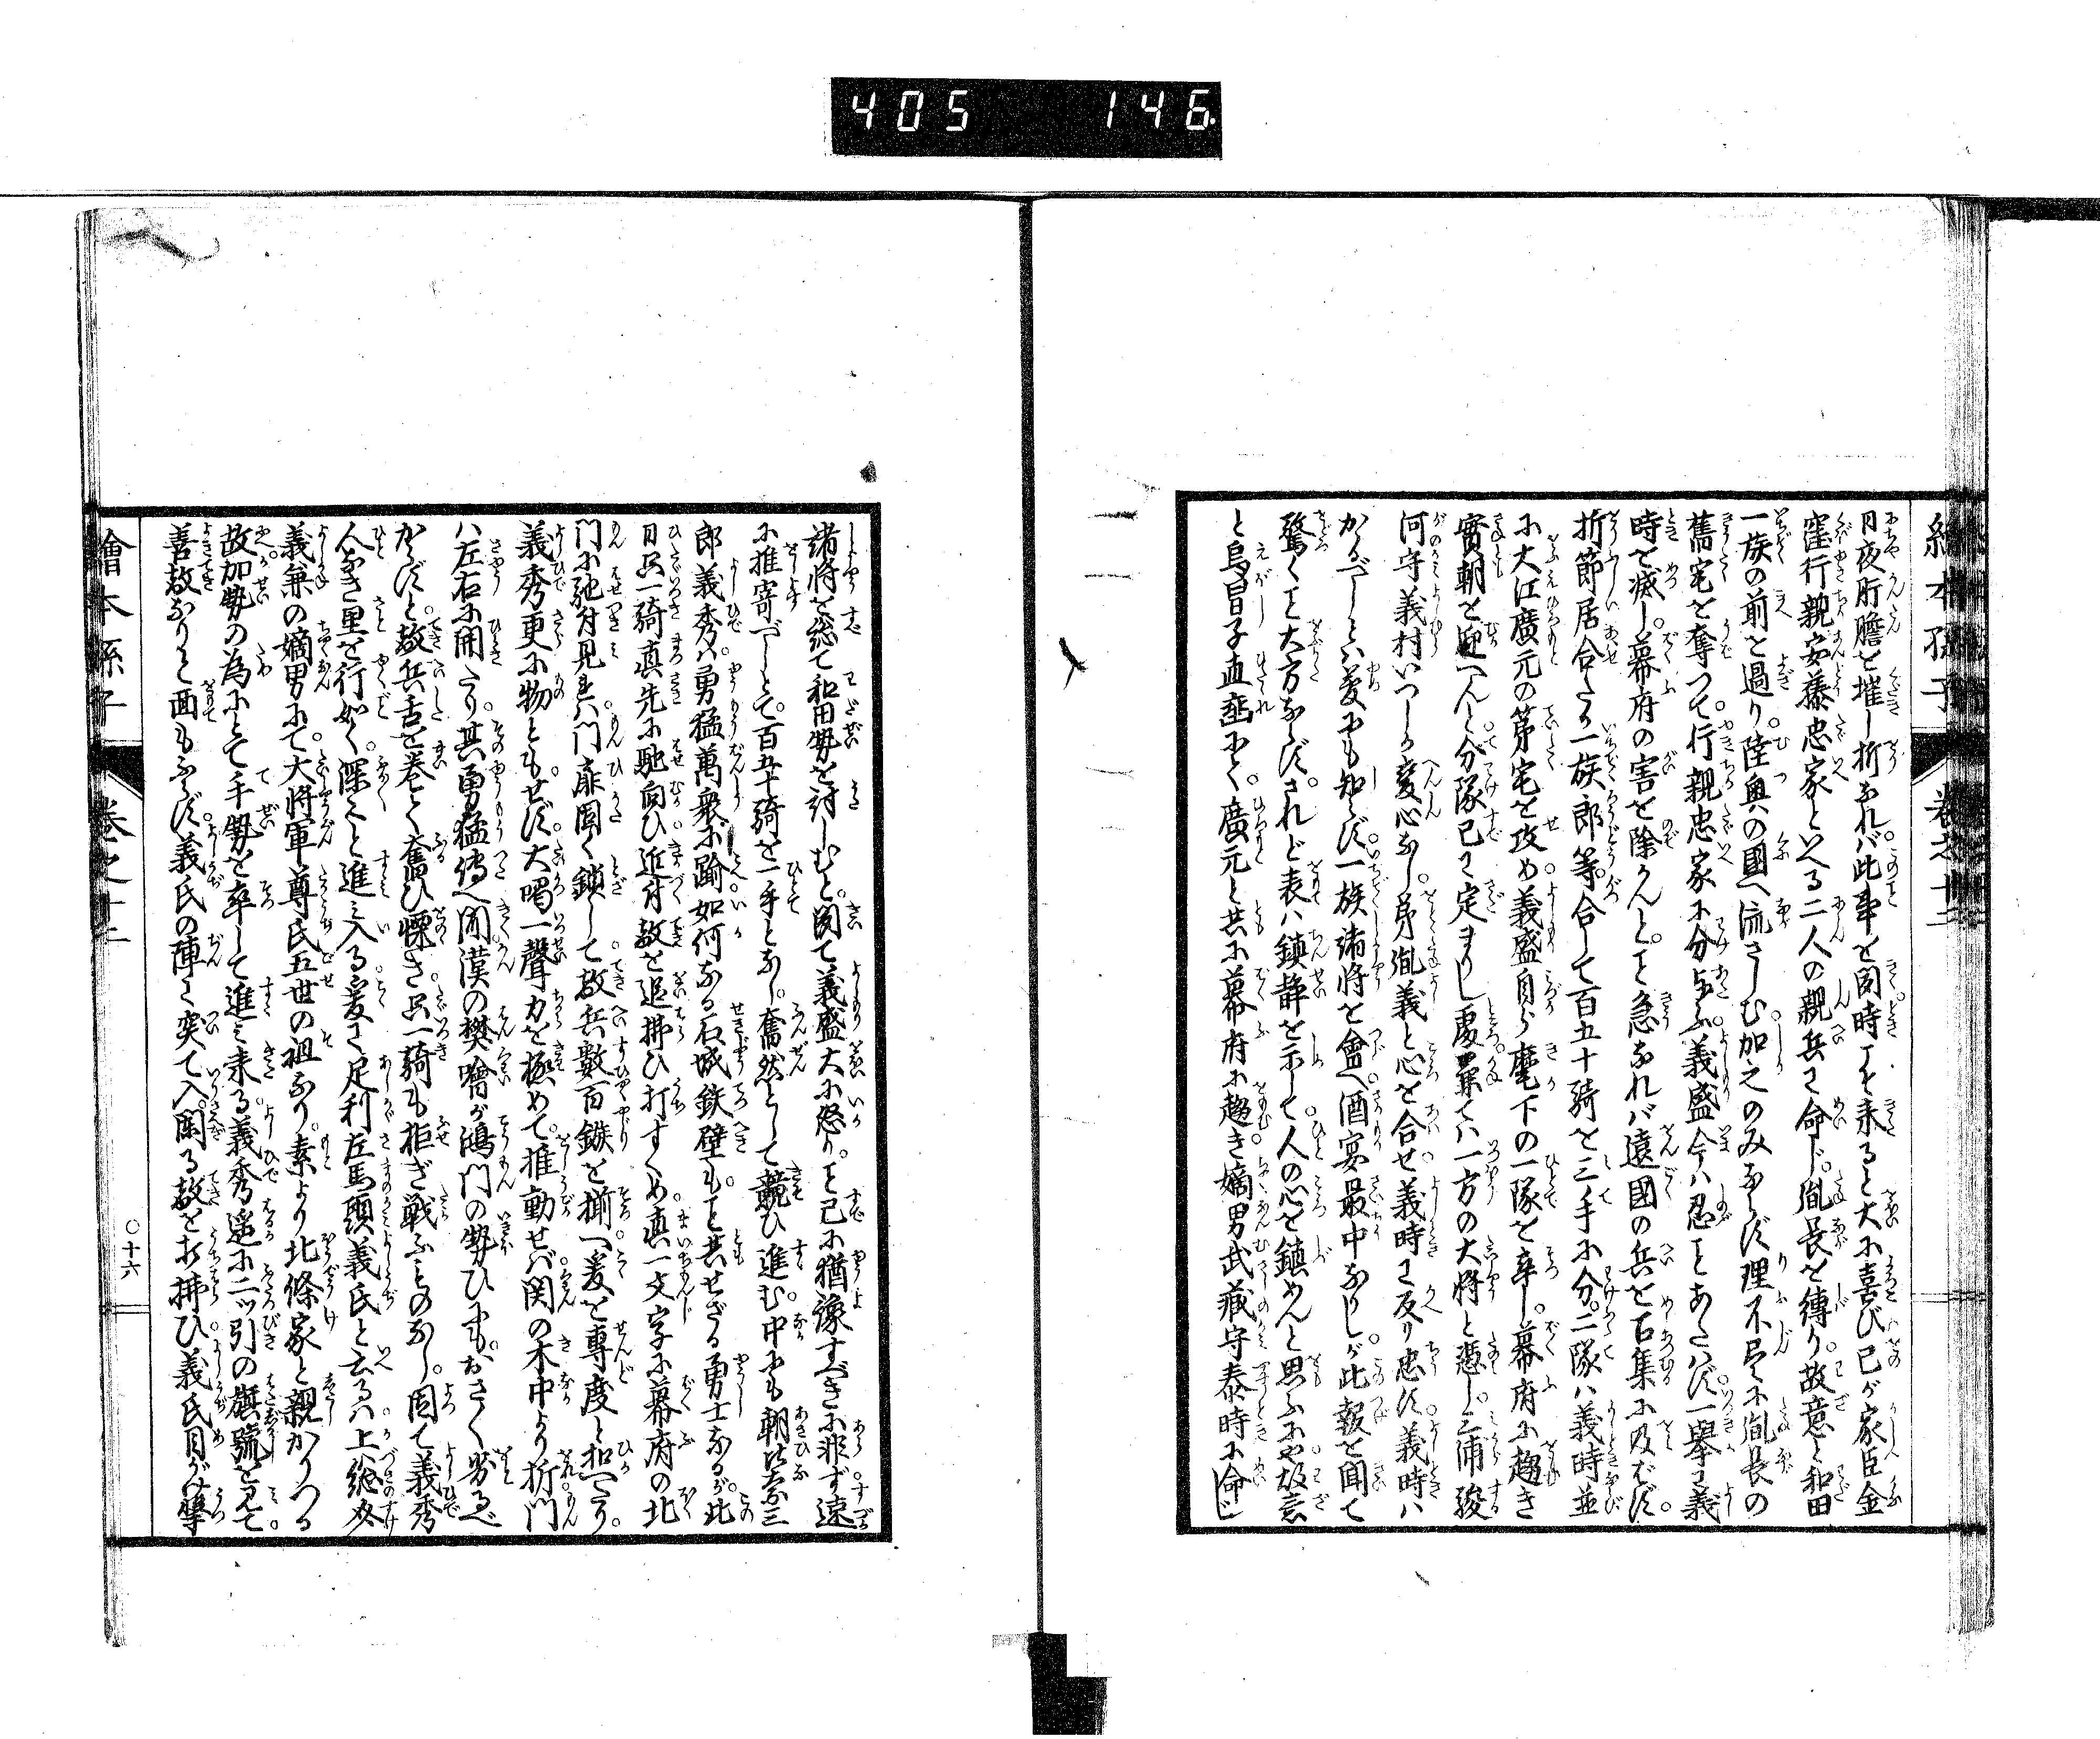 405 146
繪本孫子
卷之十二
日夜肝膽を摧し折なれば此事を聞時こそ来ると大に喜び已が家臣金
窪行親安藤忠家といへる二人の親兵に命じ胤長を縛り故意と和田
一族の前を過り陸奥の國へ流さしむ加之のみならず理不尽に胤長の
舊宅を奪つて行親忠家に分与ふ義盛今ハ忍ことあたハず一擧に義
時を滅し幕府の害を除かんとこと急なれバ遠國の兵を召集に及ばず
折節居合たる一族郎等合して百五十騎を三手に分二隊ハ義時並
に大江廣元の第宅を攻め義盛自ら麾下の一隊を率し幕府に趨き
實朝を迎へんと分隊已に定まりし處兼てハ一方の大将と憑し三浦駿
河守義村いつしか変心なし弟胤義と心を合せ義時に反り忠す義時ハ
かるべしとハ夢にも知らず一族諸将を會へ酒宴最中なりしが此報を聞て
驚くこと大方ならずされど表ハ鎮静を示して人の心を鎮めんと思ふにや故意
と烏帽子直垂にて廣元と共に幕府に趨き嫡男武蔵守泰時に命じ
諸将を総て和田勢を討しむと聞て義盛大に怒りこと已に猶豫すべきに非ず速
に推寄べしとて百五十騎を一手となし奮然として競ひ進む中にも朝比奈三
郎義秀ハ勇猛萬衆に踰如何なる石城鉄壁もこと共せざる勇士なるが此
日只一騎真先に馳向ひ近付敵を追拂ひ打すくめ真一文字に幕府の北
門に馳付見れハ門扉固く鎖して敵兵數百鏃を揃へ爰を專度と扣へたり
義秀更に物ともせず大喝一聲力を極めて推動せバ関の木中より折門
ハ左右に開たり其勇猛傳へ聞漢の樊噲が鴻門の勢ひにもおさく劣るべ
からずと敵兵舌を巻て奮ひ慄き只一騎も拒ぎ戦ふものなし因て義秀
人なき里を行如く深々と進ミ入る爰に足利左馬頭義氏と云るハ上総介
義兼の嫡男にて大将軍尊氏五世の祖なり素より北條家と親かりつる
故加勢の為にとて手勢を率して進ミ来る義秀遥に二ツ引の旗號を見て
善敵なりと面もふらず義氏の陣に突て入る敵を打拂ひ義氏目がけ撃
繪本孫子
卷之十二
〇十六